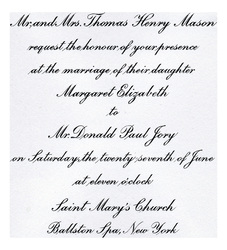 Mr. and Mrs. Thomas Henry Mason
request the honour of your presence
at the marriage of their daughter
Margaret Elizabeth
to
Mr. Donald Paul Jory
on Saturday, the twenty-seventh of June
at eleven o'clock
Saint Mary's Church
Ballston Spa, New York